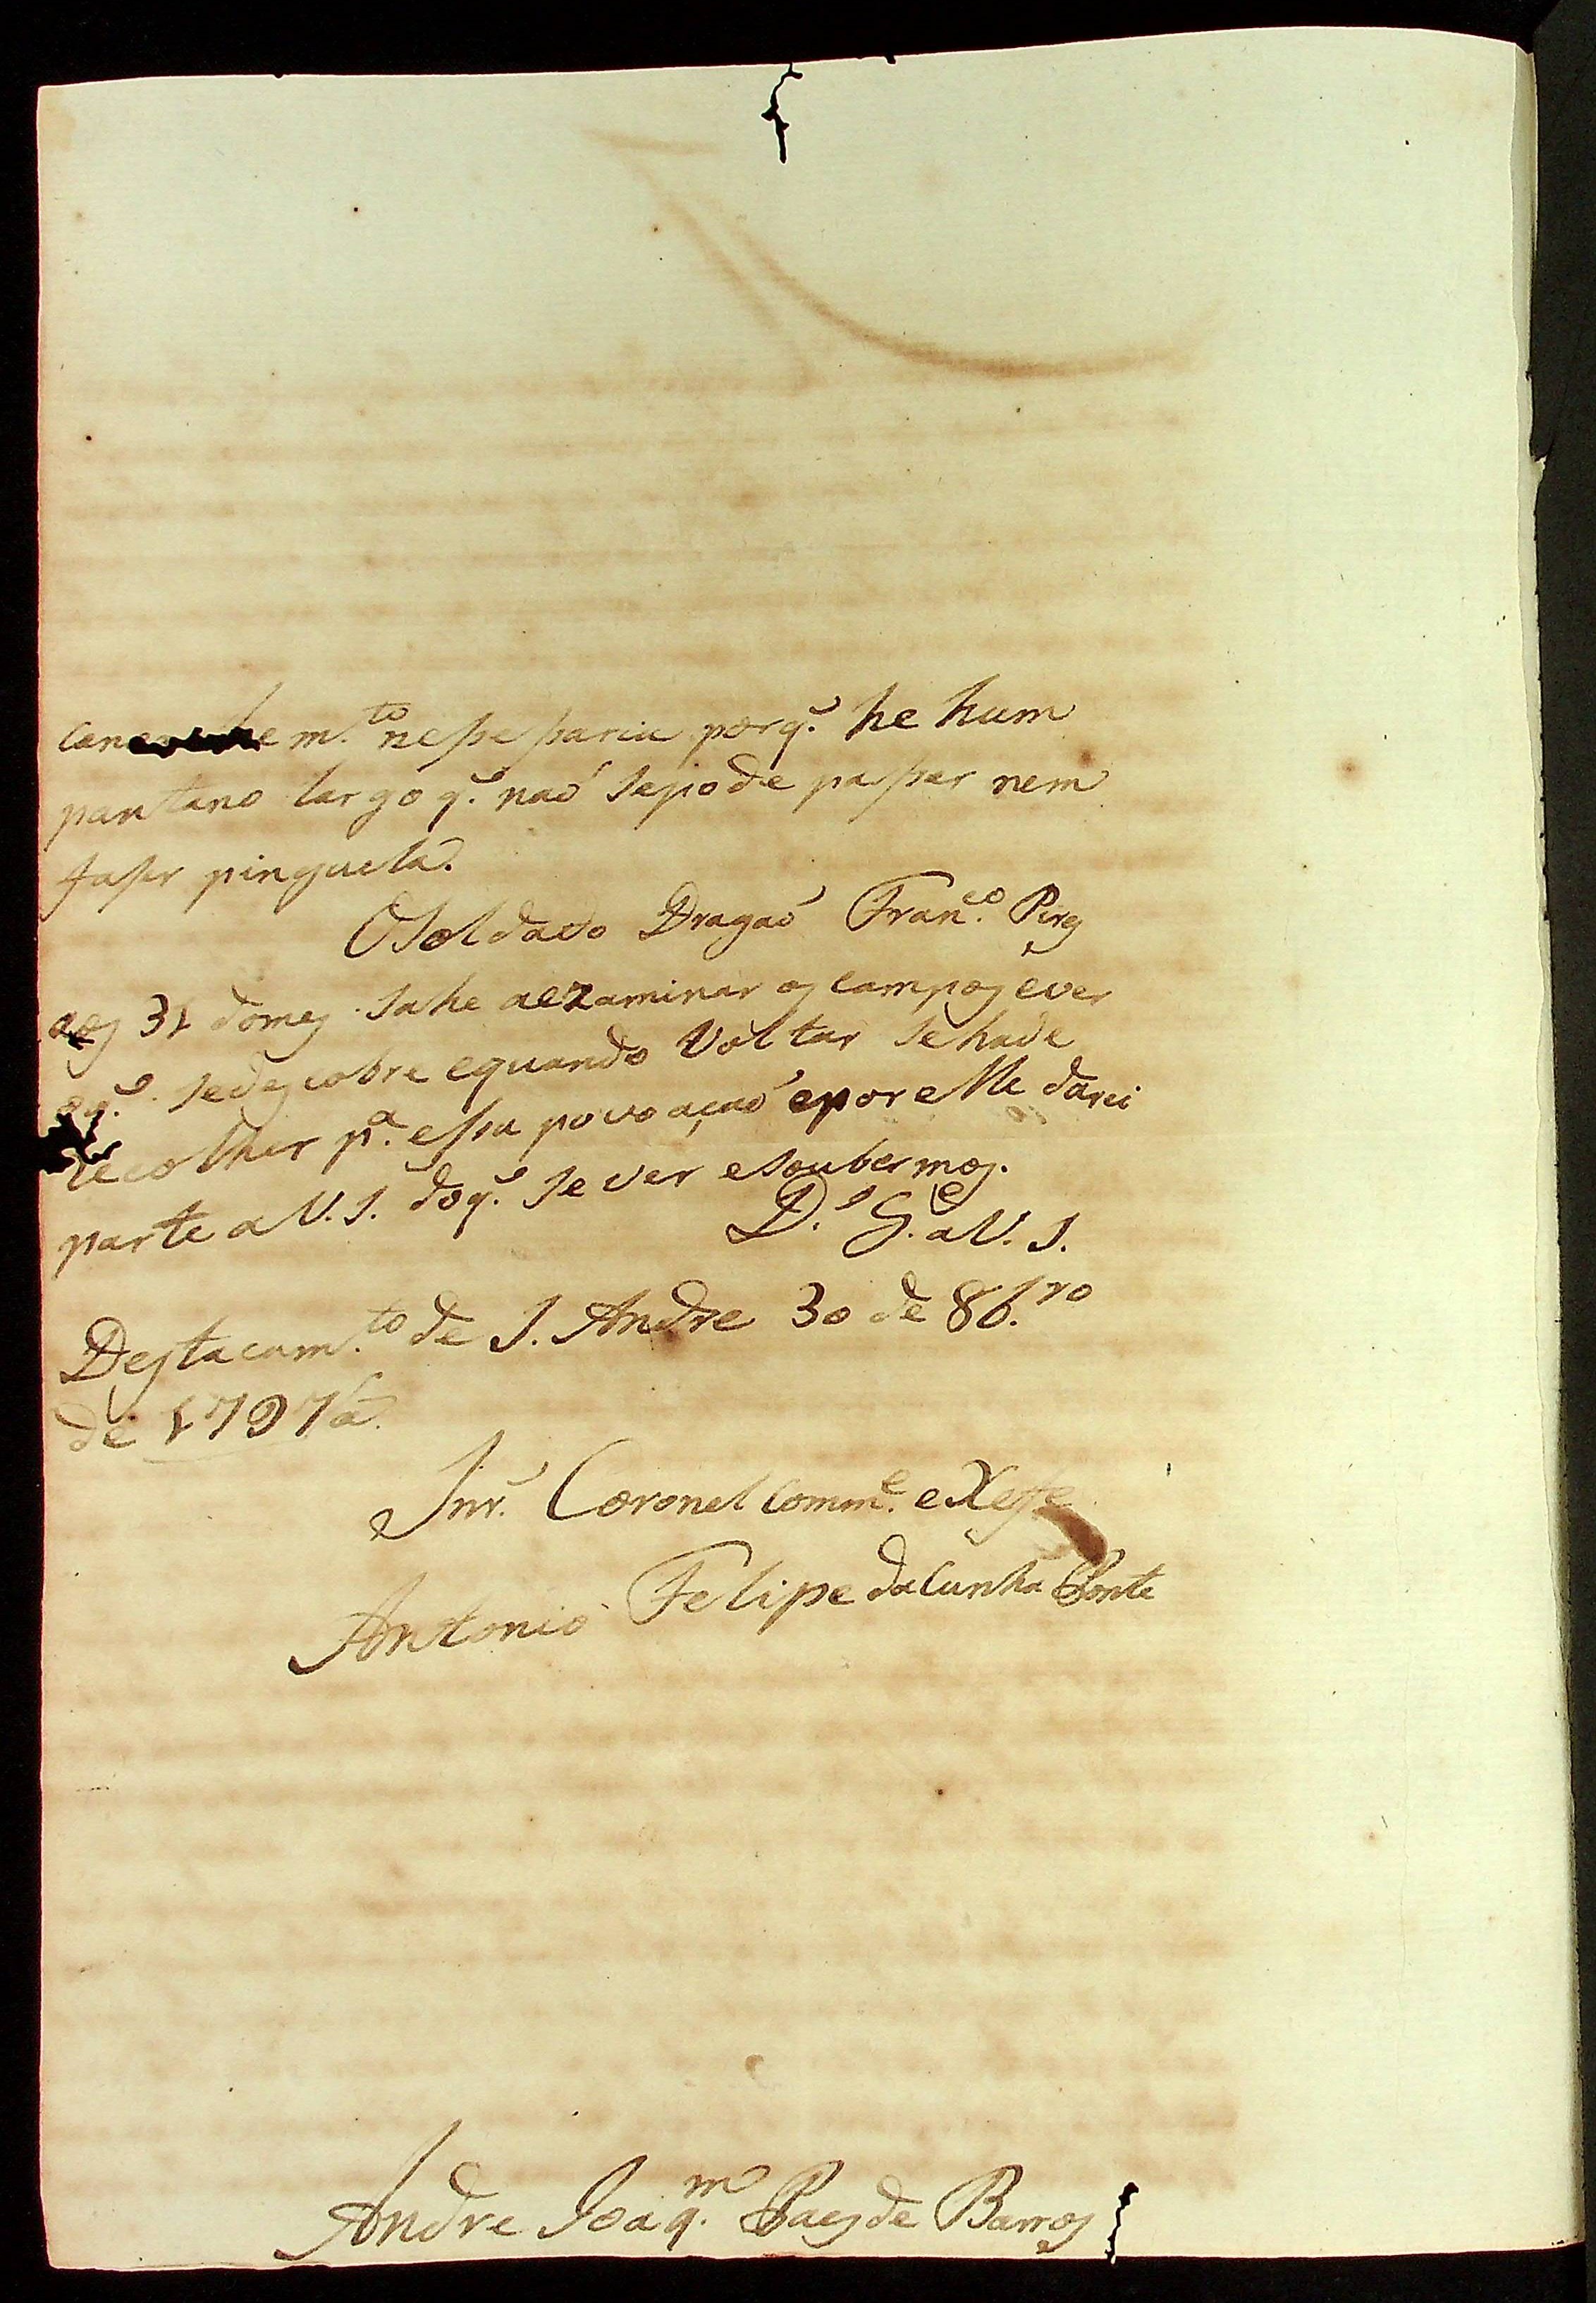 m.to neseparia porq.' he hum
pantano largo q.' naó sepode pasar nem
faser pinguela.
OSoldado Dragaó Fran.co Pires
aos 31 domes sahe aezaminar os campos ever
oq.' sedescobre equando Voltar sehade
recolher p.a essa povoaçaó epor elle darei
parte aV. S. doq.' sever esoubermos.
D.s G.e aV. S.
Destacam.to de S. Andre 30 de 8b.ro
de 1797 a.
Snr.' Coronel Comm.e eXeffe
Antonio Felipe daCunha Ponte
Andre Joaq.m Paes de Barros